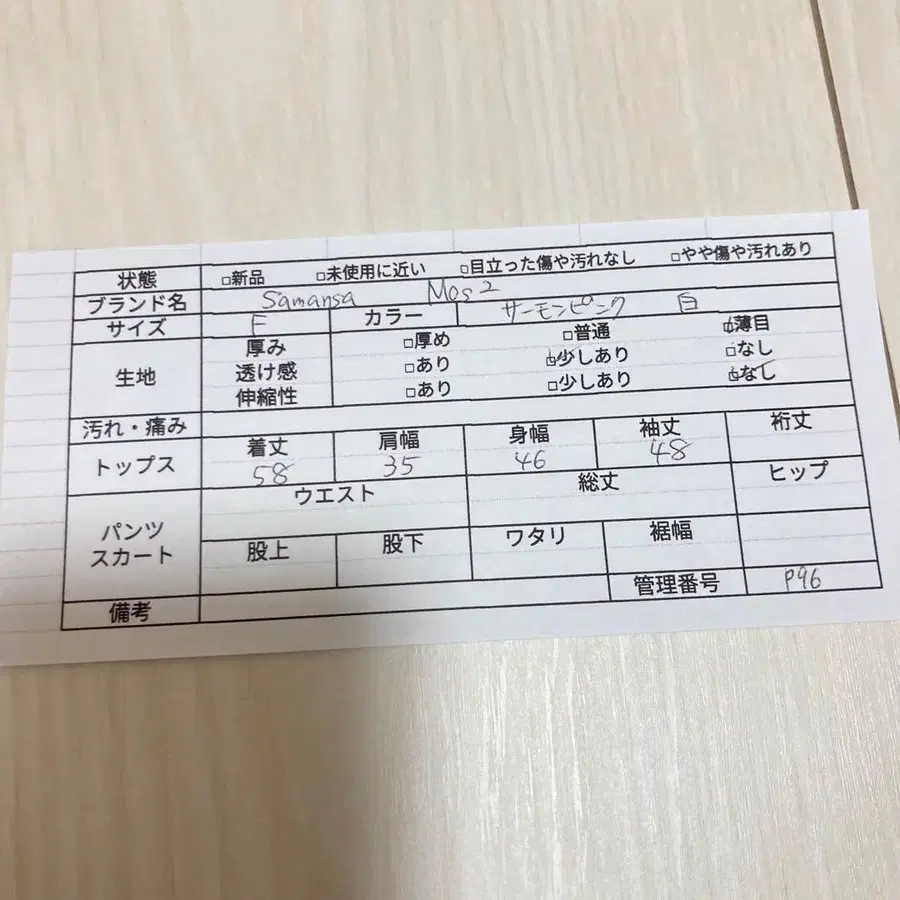 状態 □新品 □未使用に近い □目立った傷や汚れなし □やや傷や汚れあり
ブランド名 Samansa Mos2
サイズ F カラー サーモンピンク 白
生地 厚み □厚め □普通 ☑薄目
透け感 □あり ☑少しあり □なし
伸縮性 □あり □少しあり ☑なし
汚れ・痛み
トップス 着丈 肩幅 身幅 袖丈 裄丈
58 35 46 48
パンツ スカート ウエスト 総丈 ヒップ
股上 股下 ワタリ 裾幅
管理番号 P96
備考